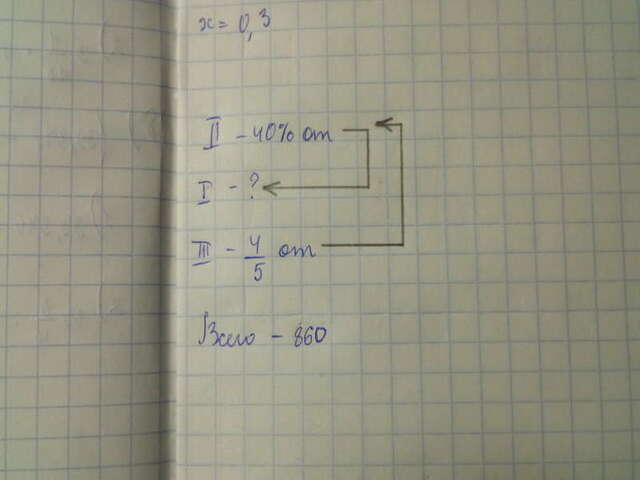 x = 0,3
II - 40% от
I - ?
III - 4/5 от
Всего - 860